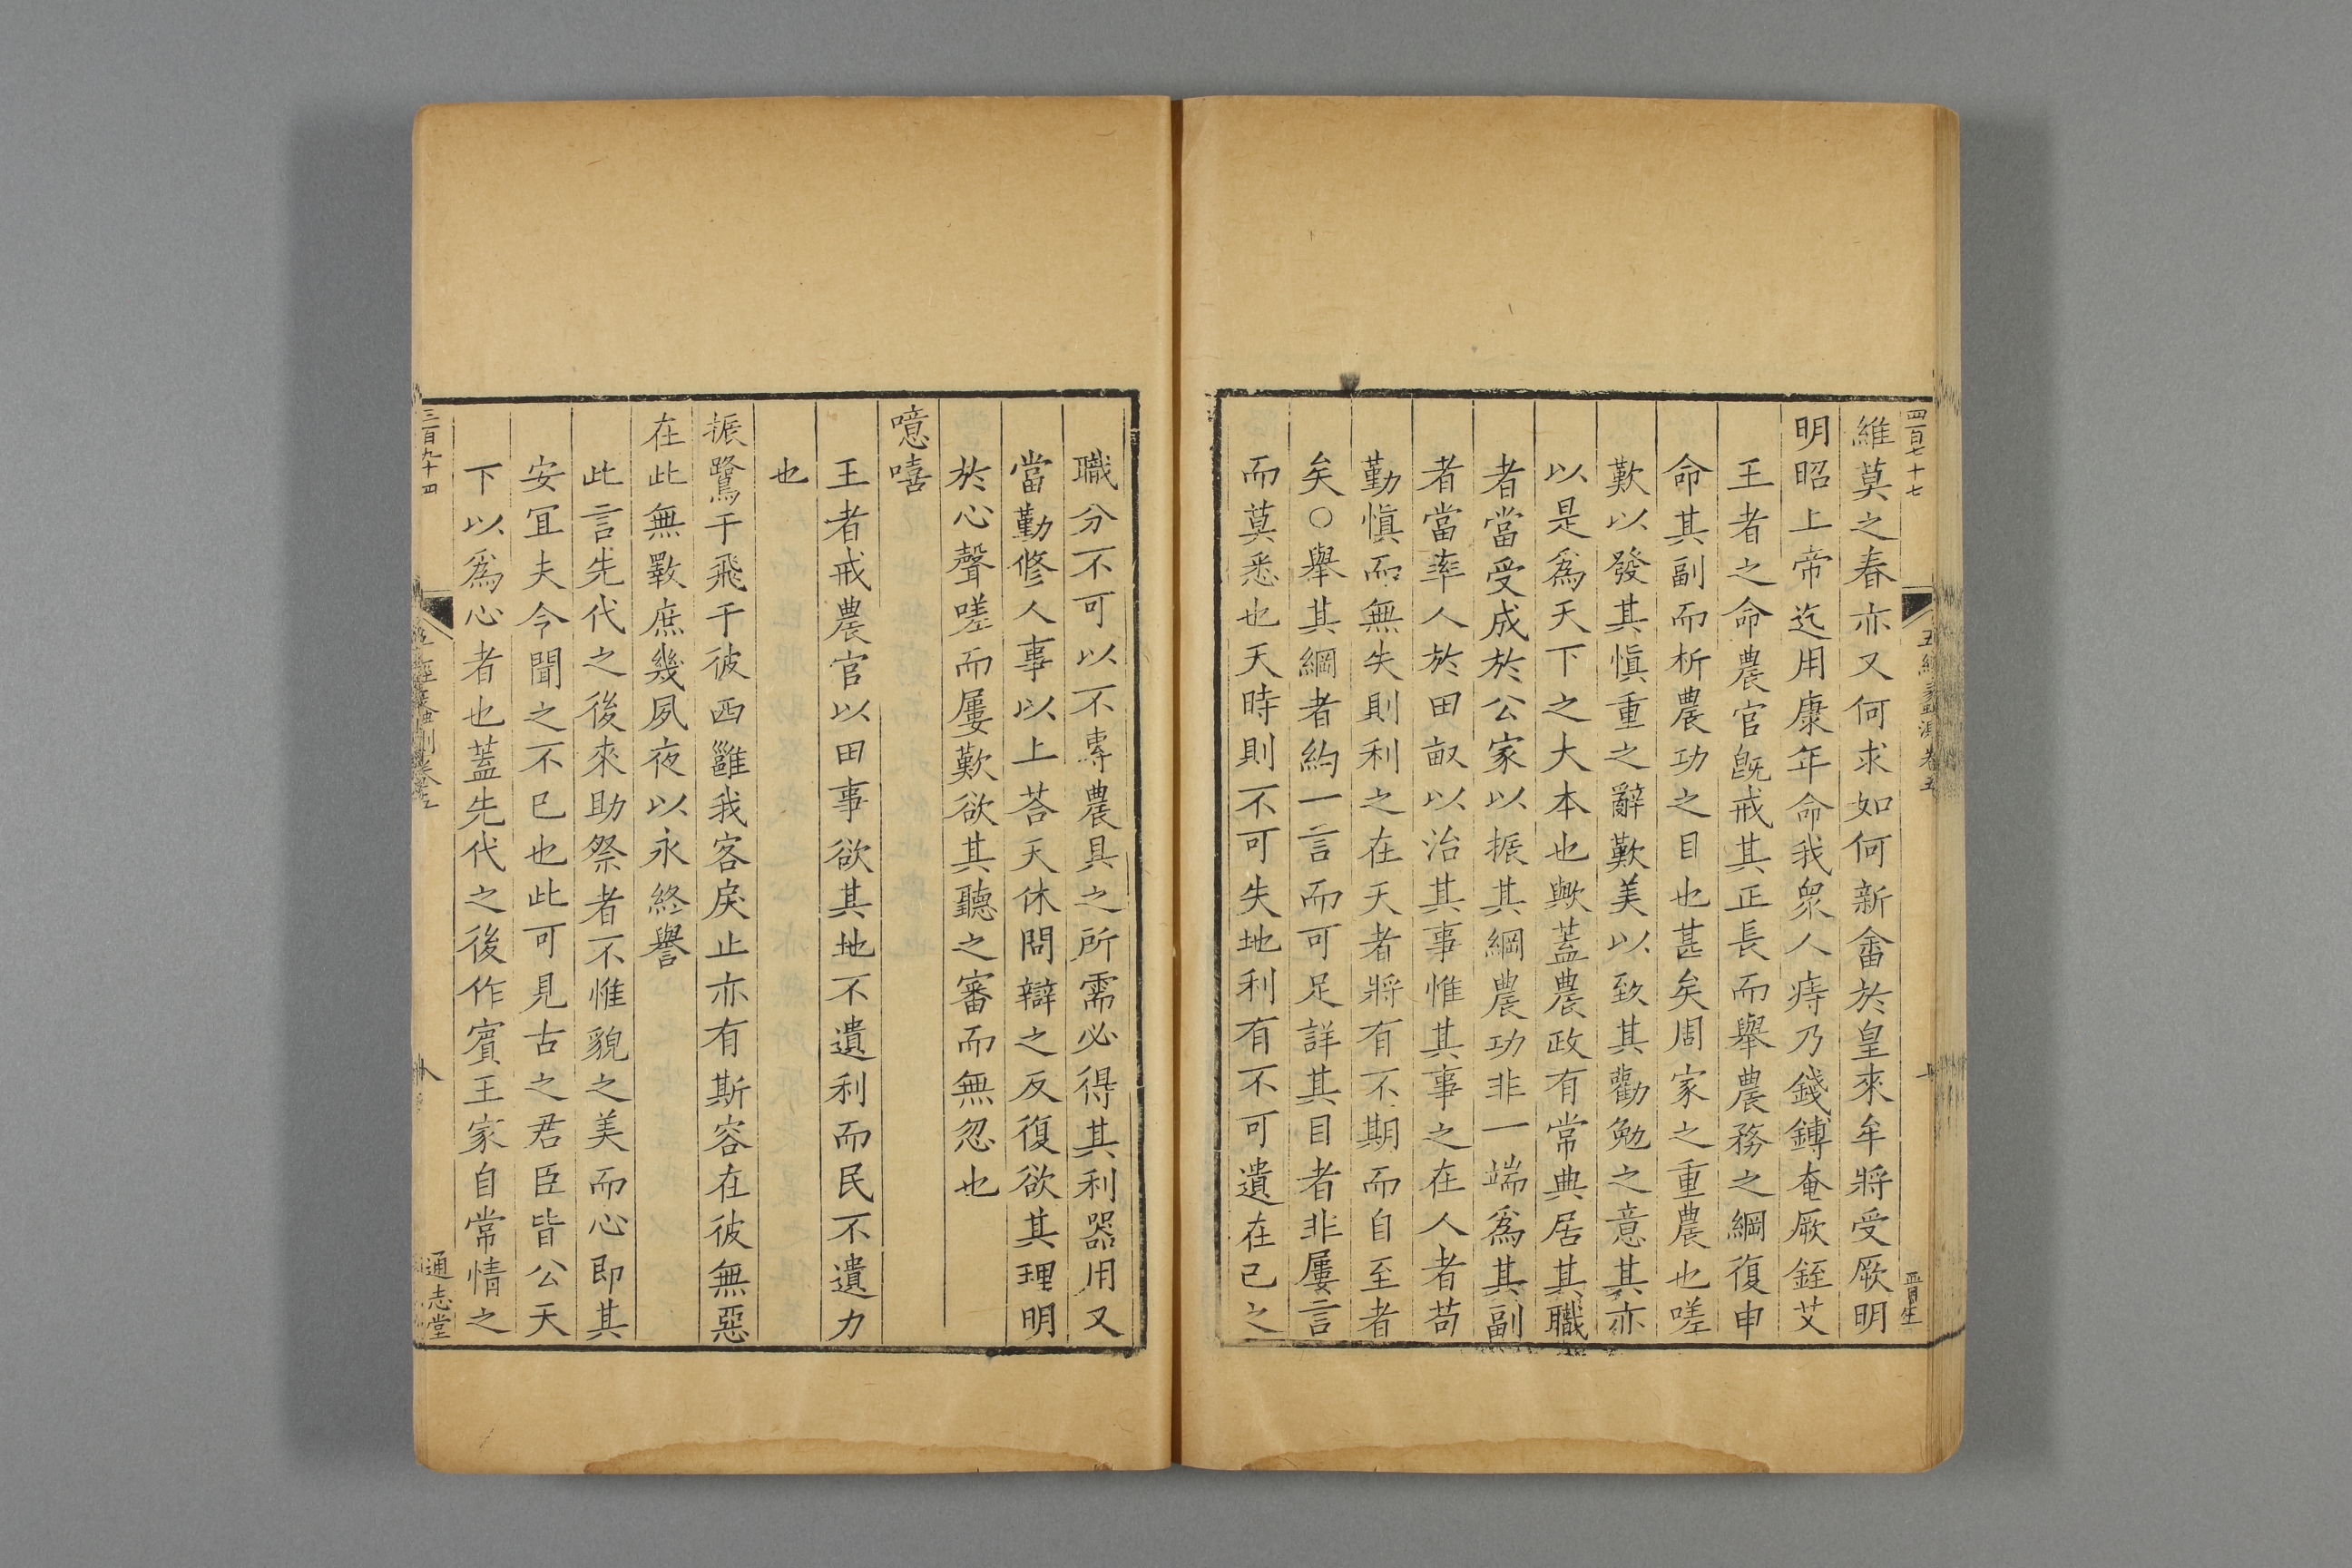 四百七十七
五經蠡測卷五
晋生
維莫之春亦又何求如何新畬於皇來牟將受厥明
明昭上帝迄用康年命我衆人庤乃錢鎛奄厥銍艾
王者之命農官旣戒其正長而舉農務之綱復申
命其副而析農功之目也甚矣周家之重農也嗟
歎以發其慎重之辭歎美以致其勸勉之意其亦
以是爲天下之大本也歟蓋農政有常典居其職
者當受成於公家以振其綱農功非一端爲其副
者當率人於田畝以治其事惟其事之在人者苟
勤慎而無失則利之在天者將有不期而自至者
矣○舉其綱者約一言而可足詳其目者非屢言
而莫悉也天時則不可失地利有不可遺在已之
職分不可以不專農具之所需必得其利器用又
當勤修人事以上荅天休問辯之反復欲其理明
於心聲嗟而屢歎欲其聽之審而無忽也
噫嘻
王者戒農官以田事欲其地不遺利而民不遺力
也
振鷺于飛于彼西雝我客戾止亦有斯容在彼無惡
在此無斁庶幾夙夜以永終譽
此言先代之後來助祭者不惟貌之美而心即其
安冝夫令聞之不已也此可見古之君臣皆公天
下以爲心者也蓋先代之後作賓王家自常情之
三百九十四
通志堂